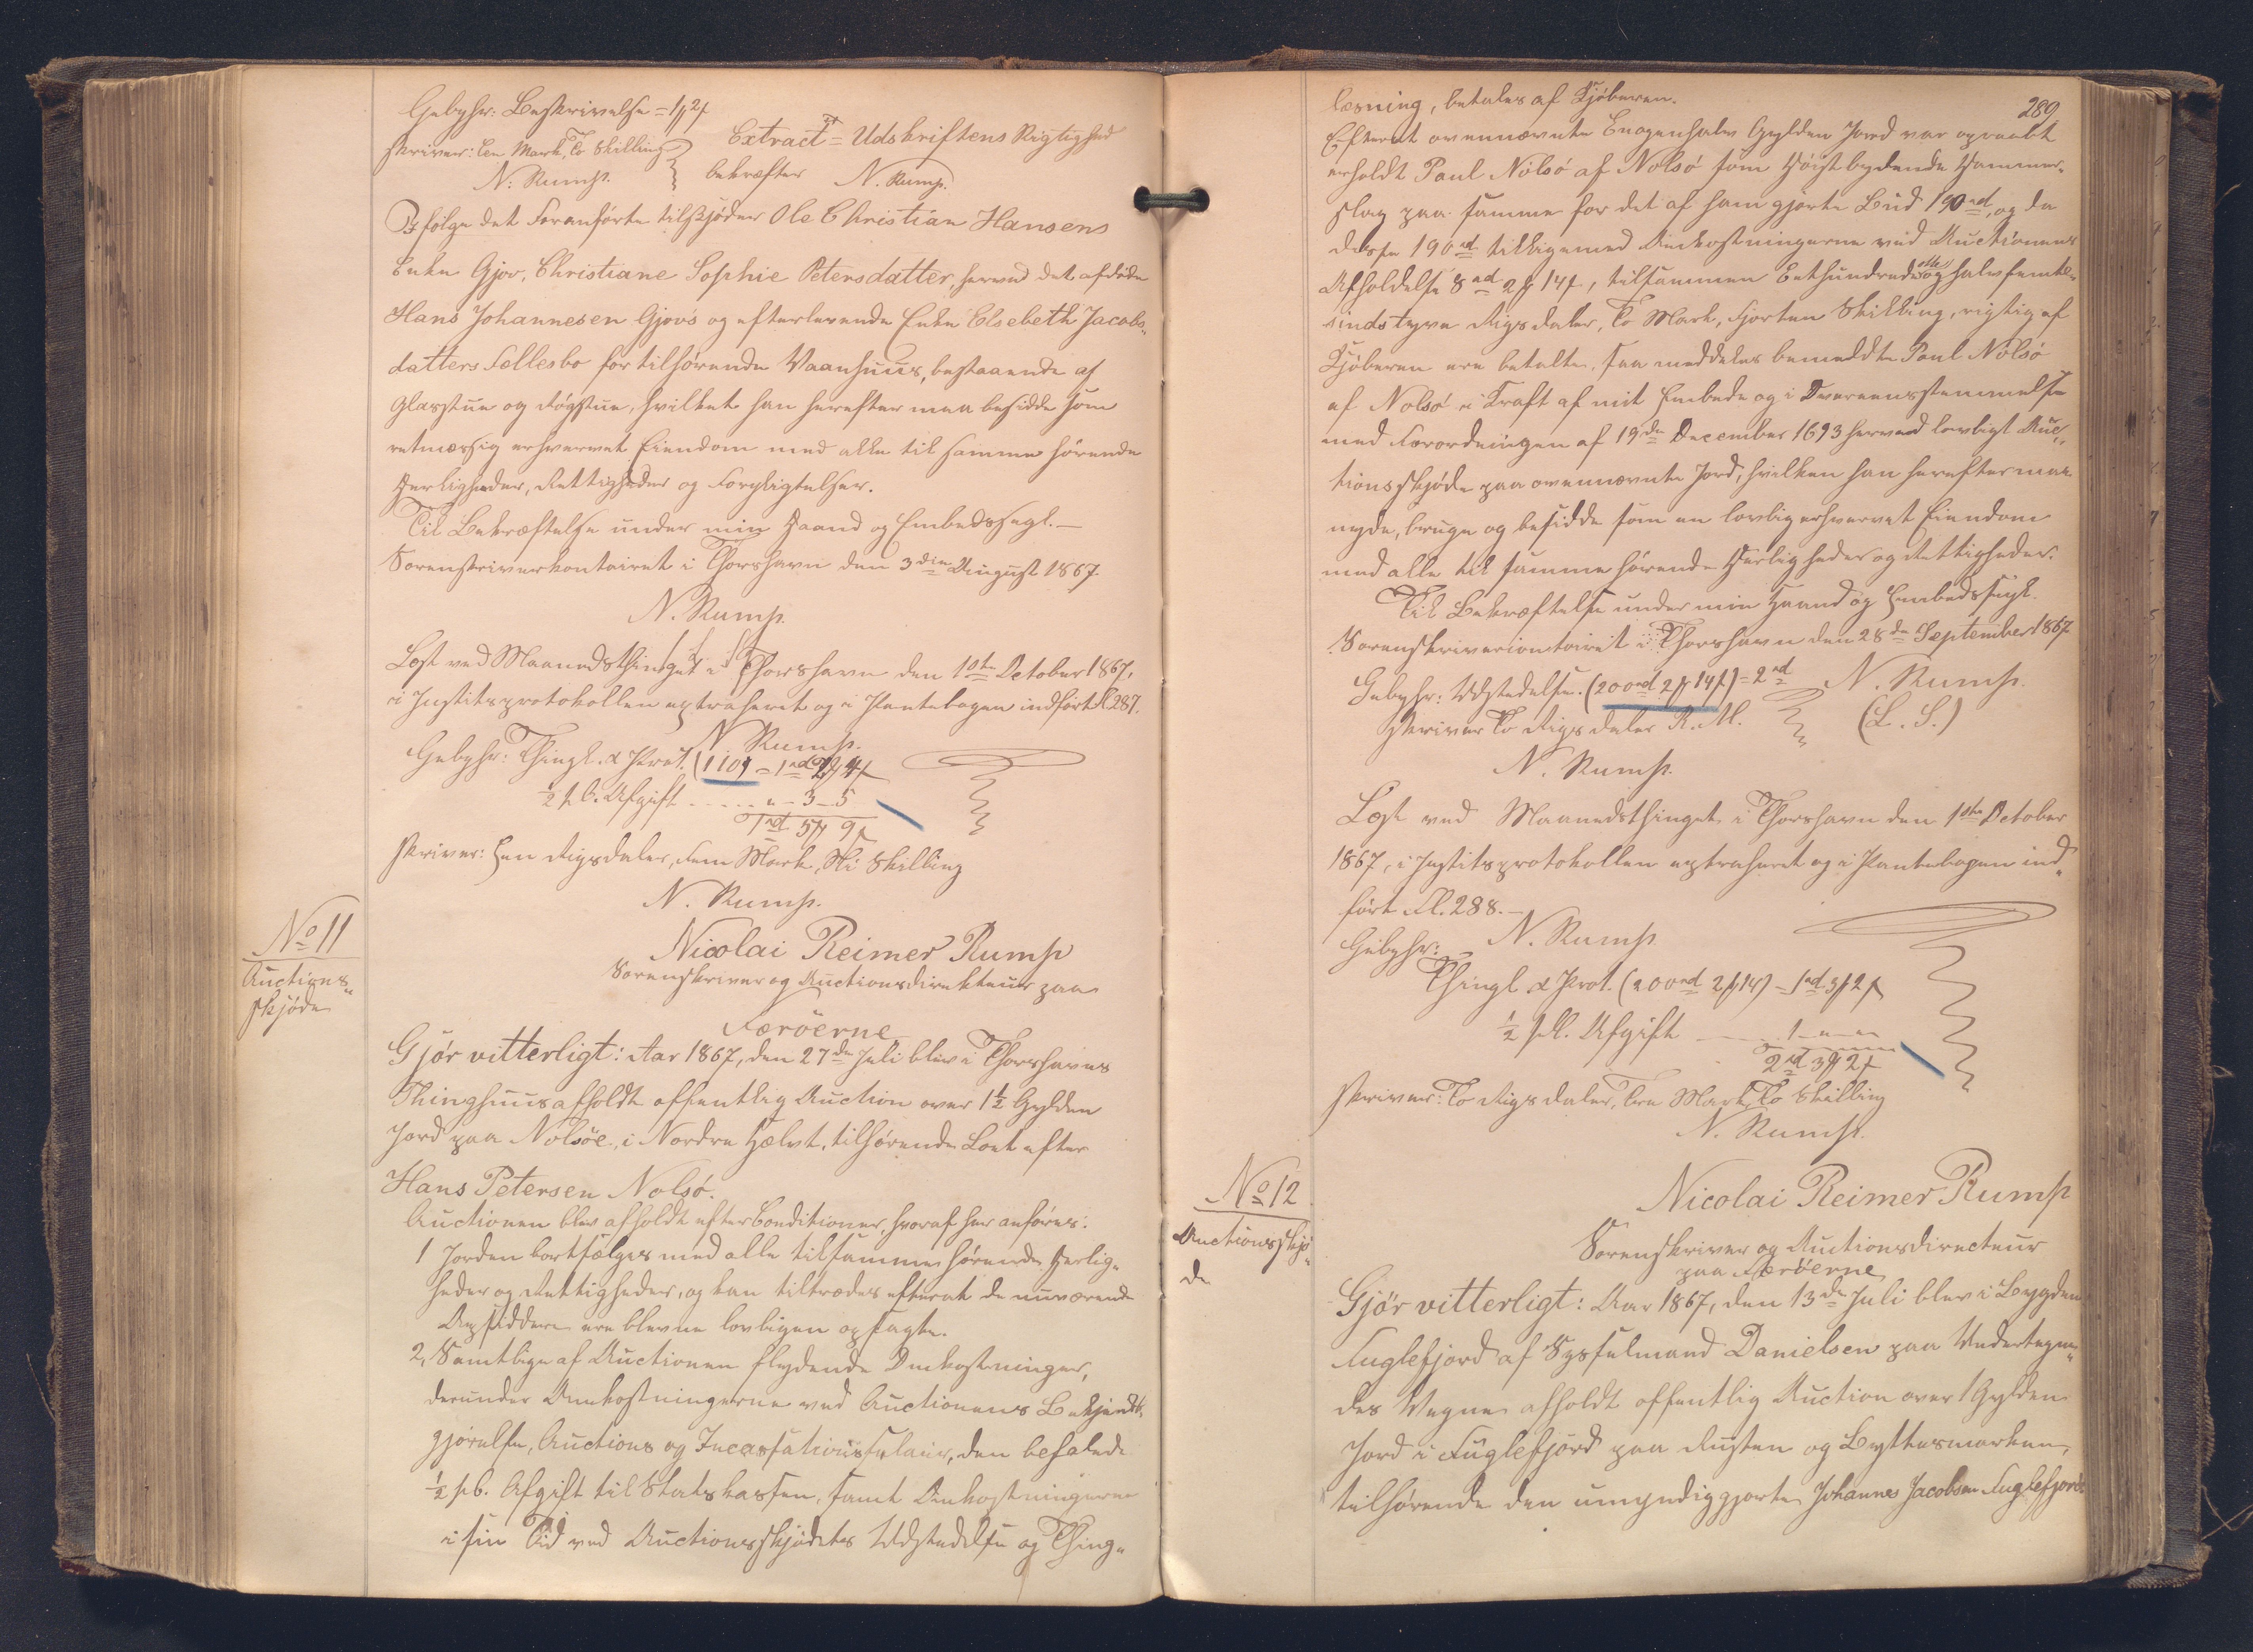 Gebyhr: Beskrivelse = 1 ₰ 2 f
skriver: Een Mark, To Skilling
N: Rump.
Extract = Udskriftens Rigtighed
bekræfter N. Rump.
Ifølge det Foranførte tilskjødes Ole Christian Hansens
Enke Gjov, Christiane Sophie Petersdatter, herved det afdøde
Hans Johannesen Gjov's og efterlevende Enke Elsebeth Jacobs-
datters Fællesbo for tilhørende Vaanhuus, bestaaende af
Glasstue og Røgstue, hvilket han herefter maa besidde som
retmæssig erhvervet Eiendom med alle til samme hørende
Herligheder, Rettigheder og Forpligtelser.
Til Bekræftelse under min Haand og Embedssegl. —
Sorenskriverkontoiret i Thorshavn den 3die August 1867
N. Rump.
Læst ved Maanedsthinget i Thorshavn den 1ste October 1867,
i Justitsprotokollen extraheret og i Pantebogen indført Fl 287.
N Rump.
Gebyhr: Thingl. & Prot. (110 = 1 rd 2 4
½ p. C. Afgift ..... " - 3 - 5
1 rd 5 9
skriver: Een Rigsdaler, Fem Mark, Ni Skilling
N. Rump.
No 11
Auctions-
skjøde
Nicolai Reimer Rump
Sorenskriver og Auctionsdirekteur paa
Færöerne
Gjör vitterligt: Aar 1867, den 27de Juli blev i Thorshavns
Thinghuus afholdt offentlig Auction over 1½ Gylden
Jord paa Nolsöe, i Nordre Hælvt, tilhørende Boet efter
Hans Petersen Nolsö.
Auctionen blev afholdt efter Conditioner, hvoraf her anføres:
1 Jorden bortsælges med alle til samme hørende Herlig-
heder og Rettigheder, og kan tiltrædes efterat de nuværende
Opsiddere ere blevne lovligen opsagte.
2, Samtlige af Auctionen flydende Omkostninger,
derunder Omkostningerne ved Auctionens Bekjendt-
gjørelse, Auctions og Incassationssalair, den befalede
½ p C. Afgift til Statskassen, samt Omkostningerne
i sin Tid ved Auctionsskjödets Udstedelse og Thing-
289
læsning, betales af Kjøberen.
Efterat ovennævnte Enogenhalv Gylden Jord var opraabt
erholdt Paul Nölsö af Nolsö som Høistbydende Hammer-
slag paa samme for det af ham gjorte Bud 190 rd, og da
disse 190 rd tilligemed Omkostningerne ved Auctionens
Afholdelse 8 rd 2 14, tilsammen Eethundrede otte og halvfemte-
sindstyve Rigsdaler, To Mark, Fjorten Skilling, rigtig af
Kjøberen ere betalte, saa meddeles bemeldte Paul Nölsö
af Nolsö i Kraft af mit Embede og i Overeensstemmelse
med Forordningen af 19de December 1693 herved lovligt Auc-
tionsskjøde paa ovennævnte Jord, hvilken han herefter maa
nyde, bruge og besidde som en lovlig erhvervet Eiendom
med alle til samme hørende Herligheder og Rettigheder.
Til Bekræftelse under min Haand og Embedssegl.
Sorenskrivercontoiret i Thorshavn den 28de September 1867
Gebyhr: Udstedelse. (200 rd 2 14) = 2 rd
N. Rump.
skriver To Rigsdaler R. M.
(L. S.)
N. Rump.
Læst ved Maanedsthinget i Thorshavn den 1ste October
1867, i Justitsprotokollen extraheret og i Pantebogen ind-
ført Fl. 288. —
N. Rump
Gebyhr:
Thingl & Prot. (200 rd 2 14) = 1 rd 3 2
½ p C. Afgift ..... 1 - " - "
2 rd 3 2
skriver: To Rigsdaler, Tre Mark, To Skilling
N. Rump.
No 12
Auctionsskjö-
de
Nicolai Reimer Rump
Sorenskriver og Auctionsdirecteur
paa Færöerne
Gjör vitterligt: Aar 1867, den 13de Juli blev i Bygden
Fuglefjord af Sysselmand Danielsen paa Undertegne-
des Vegne afholdt offentlig Auction over 1 Gylden
Jord i Fuglefjord paa Rusten og Byttesmarken,
tilhørende den umyndiggjorte Johannes Jacobsen Fuglefjord.